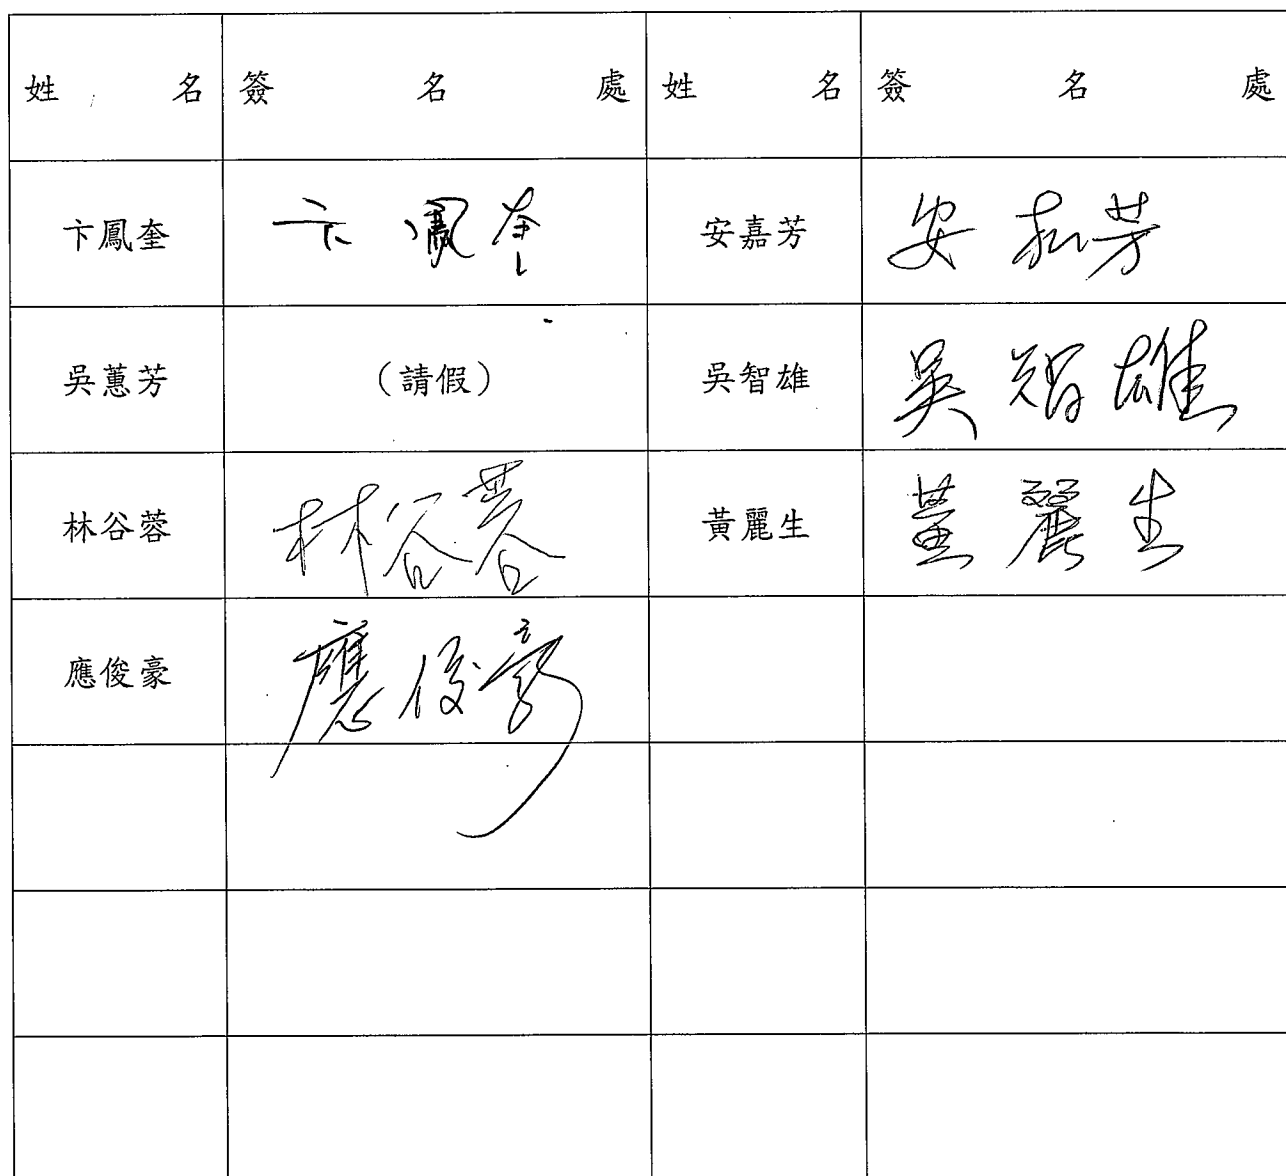 姓 名 簽 名 處 姓 名 簽 名 處
卞鳳奎 卞鳳奎 安嘉芳 安嘉芳
吳蕙芳 (請假) 吳智雄 吳智雄
林谷蓉 林谷蓉 黃麗生 黃麗生
應俊豪 應俊豪